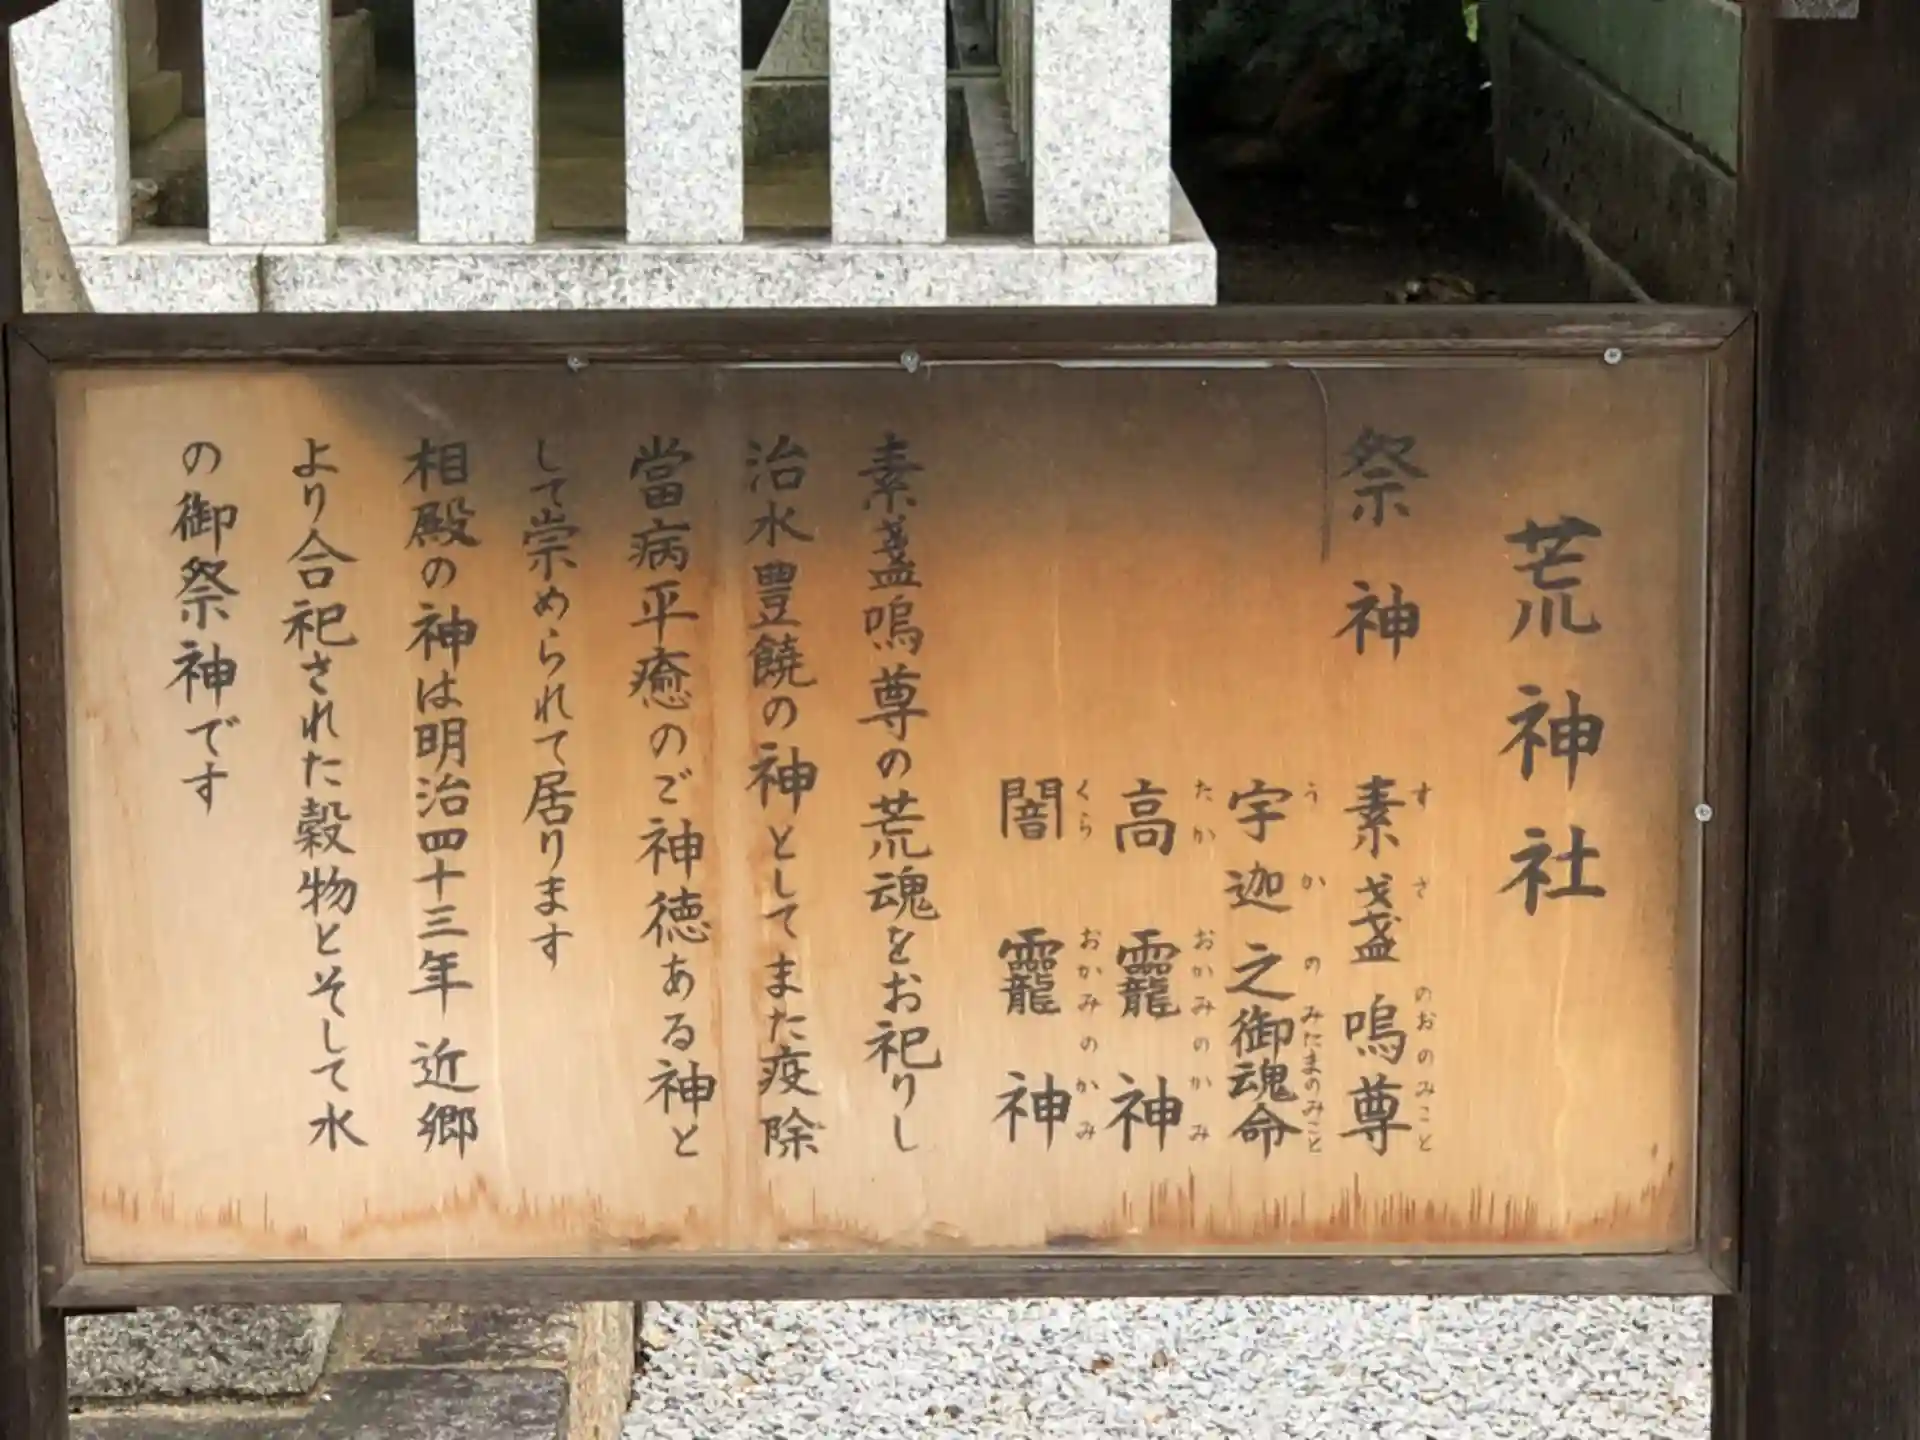 荒神社
祭神
素戔嗚尊
すさのおのみこと
宇迦之御魂命
うかのみたまのみこと
高龗神
たかおかみのかみ
闇龗神
くらおかみのかみ
素戔嗚尊の荒魂をお祀りし
治水豊饒の神としてまた疫除
當病平癒のご神徳ある神と
して崇められて居ります
相殿の神は明治四十三年 近郷
より合祀された穀物とそして水
の御祭神です